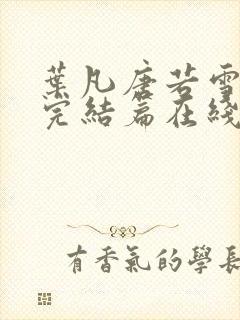 葉凡唐若雪
完結篇在綫
有香氣的學長